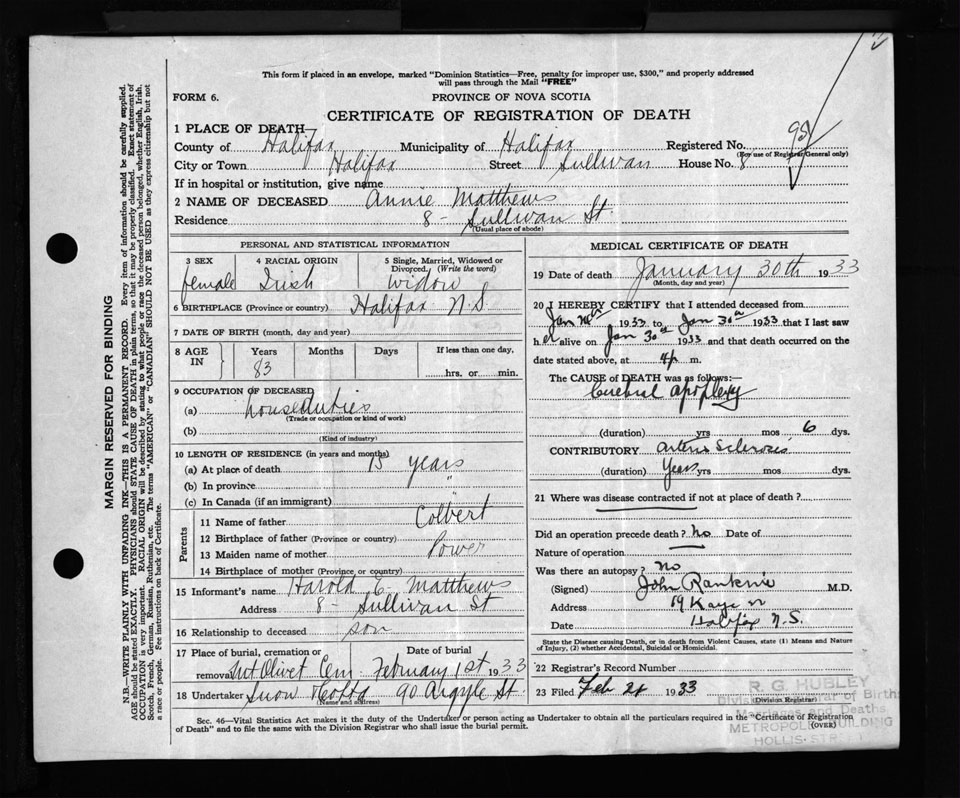 This form if placed in an envelope, marked "Dominion Statistics—Free, penalty for improper use, $300," and properly addressed
will pass through the Mail "FREE"
FORM 6.
PROVINCE OF NOVA SCOTIA
CERTIFICATE OF REGISTRATION OF DEATH
1 PLACE OF DEATH—
County of Halifax Municipality of Halifax Registered No. 98
(For use of Registrar General only)
City or Town Halifax Street Sullivan House No. 8
If in hospital or institution, give name
2 NAME OF DECEASED Annie Matthews
Residence 8- Sullivan St.
(Usual place of abode)
PERSONAL AND STATISTICAL INFORMATION
3 SEX 4 RACIAL ORIGIN 5 Single, Married, Widowed or
Divorced. (Write the word)
female Irish widow
6 BIRTHPLACE (Province or country) Halifax N.S.
7 DATE OF BIRTH (month, day and year)
8 AGE IN Years Months Days If less than one day,
83 hrs. or min.
9 OCCUPATION OF DECEASED
(a) house duties
(Trade or occupation or kind of work)
(b)
(Kind of industry)
10 LENGTH OF RESIDENCE (in years and months)
(a) At place of death 15 years
(b) In province "
(c) In Canada (if an immigrant) "
Parents
11 Name of father Colbert
12 Birthplace of father (Province or country)
13 Maiden name of mother Power
14 Birthplace of mother (Province or country)
15 Informant's name Harold E. Matthews
Address 8- Sullivan St
16 Relationship to deceased son
17 Place of burial, cremation or removal Date of burial
Mt Olivet Cem. February 1st 1933
18 Undertaker Snow 90 Argyle St.
(Name and address)
MEDICAL CERTIFICATE OF DEATH
19 Date of death January 30th 1933
(Month, day and year)
20 I HEREBY CERTIFY that I attended deceased from
Jan 1933 to Jan 30th 1933 that I last saw
her alive on Jan 30th 1933 and that death occurred on the
date stated above, at 4p m.
The CAUSE of DEATH was as follows:—
Cerebral apoplexy
(duration) yrs mos 6 dys.
CONTRIBUTORY Arterio Sclerosis
(duration) Years yrs mos dys.
21 Where was disease contracted if not at place of death?
Did an operation precede death? No Date of
Nature of operation
Was there an autopsy? No
(Signed) John Rankine M.D.
Address 19 Kaye
Date Halifax N.S.
State the Disease causing Death, or in death from Violent Causes, state (1) Means and Nature
of Injury, (2) whether Accidental, Suicidal or Homicidal.
22 Registrar's Record Number
23 Filed Feb 1933
(Division Registrar)
R. G. HUBLEY
Division Registrar of Births
Marriages and Deaths
METROPOLE BUILDING
HOLLIS STREET
Sec. 46—Vital Statistics Act makes it the duty of the Undertaker or person acting as Undertaker to obtain all the particulars required in the "Certificate of Registration
of Death" and to file the same with the Division Registrar who shall issue the burial permit. (OVER)
MARGIN RESERVED FOR BINDING
N.B.—WRITE PLAINLY WITH UNFADING INK—THIS IS A PERMANENT RECORD. Every item of information should be carefully supplied.
AGE should be stated EXACTLY. PHYSICIANS should STATE CAUSE OF DEATH in plain terms, so that it may be properly classified. Exact statement of
OCCUPATION is very important. RACIAL ORIGIN will be described by stating to what people or race the deceased person belonged, whether English, Irish,
Scotch, French, German, Russian, Ruthenian, etc. The terms "AMERICAN" or "CANADIAN" SHOULD NOT BE USED as they express citizenship but not
a race or people. See instructions on back of Certificate.